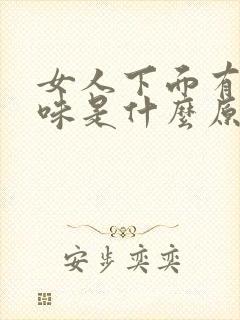 女人下面有
味是什麼原
安步奕奕